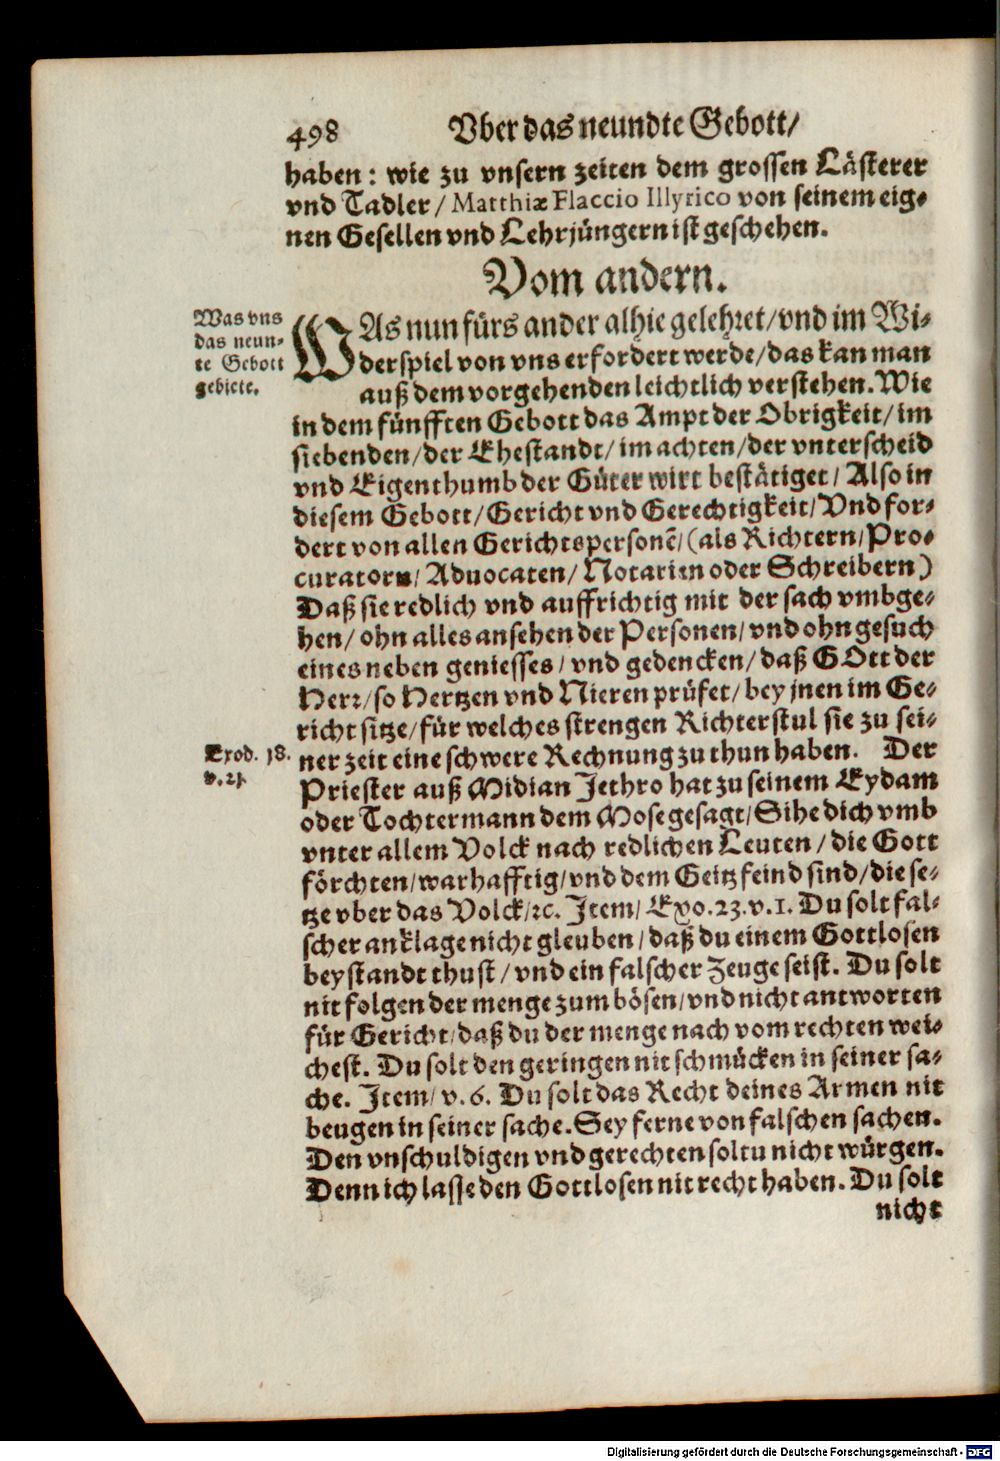 498 Vber das neundte Gebott/
haben: wie zu vnsern zeiten dem grossen Lästerer
vnd Tadler/ Matthiæ Flaccio Illyrico von seinem eig-
nen Gesellen vnd Lehrjüngern ist geschehen.
Vom andern.
Was vns
das neun-
te Gebott
gebiete.
WAs nun fürs ander alhie gelehret/ vnd im Wi-
derspiel von vns erfordert werde/ das kan man
auß dem vorgehenden leichtlich verstehen. Wie
in dem fünfften Gebott das Ampt der Obrigkeit/ im
siebenden/ der Ehestandt/ im achten/ der vnterscheid
vnd Eigenthumb der Güter wirt bestätiget/ Also in
diesem Gebott/ Gericht vnd Gerechtigkeit/ Vnd for-
dert von allen Gerichtspersonē/ (als Richtern/ Pro-
curatorn/ Aduocaten/ Notarien oder Schreibern)
Daß sie redlich vnd auffrichtig mit der sach vmbge-
hen/ ohn alles ansehen der Personen/ vnd ohn gesuch
eines neben geniesses/ vnd gedencken/ daß GOtt der
Herr/ so Hertzen vnd Nieren prüfet/ bey jnen im Ge-
richt sitze/ für welches strengen Richterstul sie zu sei-
Exod. 18.
v. 21.
ner zeit eine schwere Rechnung zu thun haben. Der
Priester auß Midian Jethro hat zu seinem Eydam
oder Tochtermann dem Mose gesagt/ Sihe dich vmb
vnter allem Volck nach redlichen Leuten/ die Gott
förchten/ warhafftig/ vnd dem Geitz feind sind/ die se-
tze vber das Volck/ ꝛc. Item/ Exo. 23. v. 1. Du solt fal-
scher anklage nicht gleuben/ daß du einem Gottlosen
beystandt thust/ vnd ein falscher Zeuge seist. Du solt
nit folgen der menge zum bösen/ vnd nicht antworten
für Gericht/ daß du der menge nach vom rechten wei-
chest. Du solt den geringen nit schmücken in seiner sa-
che. Item/ v. 6. Du solt das Recht deines Armen nit
beugen in seiner sache. Sey ferne von falschen sachen.
Den vnschuldigen vnd gerechten soltu nicht würgen.
Denn ich lasse den Gottlosen nit recht haben. Du solt
nicht
Digitalisierung gefördert durch die Deutsche Forschungsgemeinschaft - DFG